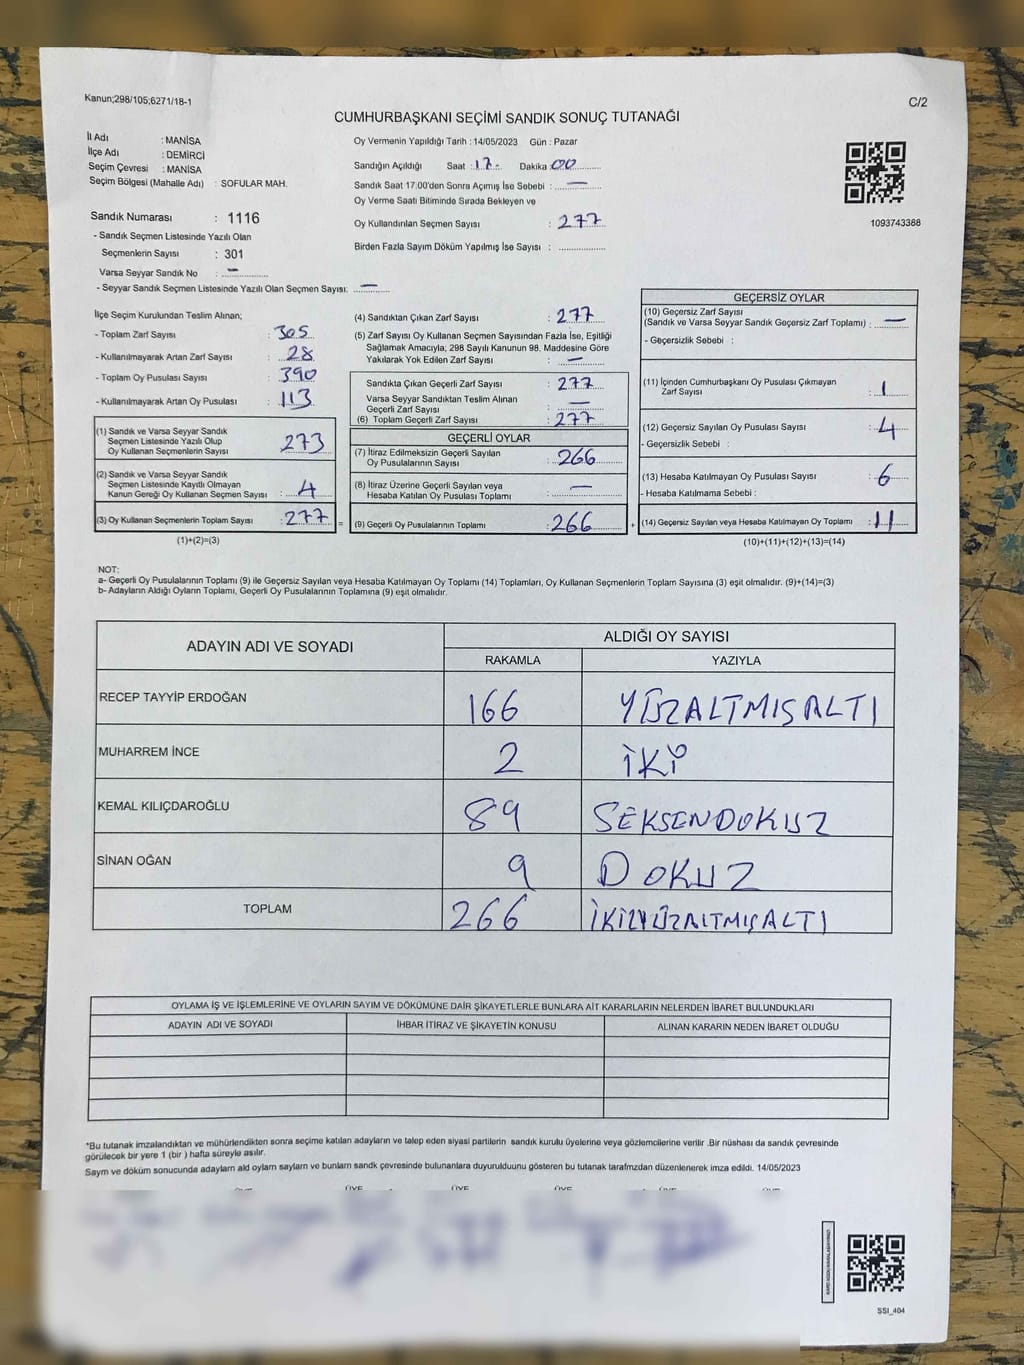 Kanun;298/105;6271/18-1
C/2
CUMHURBAŞKANI SEÇİMİ SANDIK SONUÇ TUTANAĞI
İl Adı : MANİSA
İlçe Adı : DEMİRCİ
Seçim Çevresi : MANİSA
Seçim Bölgesi (Mahalle Adı) : SOFULAR MAH.
Oy Vermenin Yapıldığı Tarih : 14/05/2023 Gün : Pazar
Sandığın Açıldığı Saat : 17 - Dakika : 00
Sandık Saat 17:00'den Sonra Açımış İse Sebebi : —
Oy Verme Saati Bitiminde Sırada Bekleyen ve
Oy Kullandırılan Seçmen Sayısı : 277
Birden Fazla Sayım Döküm Yapılmış İse Sayısı :
1093743388
Sandık Numarası : 1116
- Sandık Seçmen Listesinde Yazılı Olan
Seçmenlerin Sayısı : 301
Varsa Seyyar Sandık No : —
- Seyyar Sandık Seçmen Listesinde Yazılı Olan Seçmen Sayısı: —
İlçe Seçim Kurulundan Teslim Alınan;
- Toplam Zarf Sayısı : 305
- Kullanılmayarak Artan Zarf Sayısı : 28
- Toplam Oy Pusulası Sayısı : 390
- Kullanılmayarak Artan Oy Pusulası : 113
(1) Sandık ve Varsa Seyyar Sandık
Seçmen Listesinde Yazılı Olup
Oy Kullanan Seçmenlerin Sayısı : 273
(2) Sandık ve Varsa Seyyar Sandık
Seçmen Listesinde Kayıtlı Olmayan
Kanun Gereği Oy Kullanan Seçmen Sayısı : 4
(3) Oy Kullanan Seçmenlerin Toplam Sayısı : 277
(1)+(2)=(3)
(4) Sandıktan Çıkan Zarf Sayısı : 277
(5) Zarf Sayısı Oy Kullanan Seçmen Sayısından Fazla İse, Eşitliği
Sağlamak Amacıyla; 298 Sayılı Kanunun 98. Maddesine Göre
Yakılarak Yok Edilen Zarf Sayısı : —
Sandıkta Çıkan Geçerli Zarf Sayısı : 277
Varsa Seyyar Sandıktan Teslim Alınan
Geçerli Zarf Sayısı : —
(6) Toplam Geçerli Zarf Sayısı : 277
GEÇERLİ OYLAR
(7) İtiraz Edilmeksizin Geçerli Sayılan
Oy Pusulalarının Sayısı : 266
(8) İtiraz Üzerine Geçerli Sayılan veya
Hesaba Katılan Oy Pusulası Toplamı : —
= (9) Geçerli Oy Pusulalarının Toplamı : 266 +
GEÇERSİZ OYLAR
(10) Geçersiz Zarf Sayısı
(Sandık ve Varsa Seyyar Sandık Geçersiz Zarf Toplamı) : —
- Geçersizlik Sebebi :
(11) İçinden Cumhurbaşkanı Oy Pusulası Çıkmayan
Zarf Sayısı : 1
(12) Geçersiz Sayılan Oy Pusulası Sayısı : 4
- Geçersizlik Sebebi :
(13) Hesaba Katılmayan Oy Pusulası Sayısı : 6
- Hesaba Katılmama Sebebi :
(14) Geçersiz Sayılan veya Hesaba Katılmayan Oy Toplamı : 11
(10)+(11)+(12)+(13)=(14)
NOT:
a- Geçerli Oy Pusulalarının Toplamı (9) ile Geçersiz Sayılan veya Hesaba Katılmayan Oy Toplamı (14) Toplamları, Oy Kullanan Seçmenlerin Toplam Sayısına (3) eşit olmalıdır. (9)+(14)=(3)
b- Adayların Aldığı Oyların Toplamı, Geçerli Oy Pusulalarının Toplamına (9) eşit olmalıdır.
ADAYIN ADI VE SOYADI ALDIĞI OY SAYISI
RAKAMLA YAZIYLA
RECEP TAYYİP ERDOĞAN 166 YÜZALTMIŞALTI
MUHARREM İNCE 2 İKİ
KEMAL KILIÇDAROĞLU 89 SEKSENDOKUZ
SİNAN OĞAN 9 DOKUZ
TOPLAM 266 İKİZYÜZALTMIŞALTI
OYLAMA İŞ VE İŞLEMLERİNE VE OYLARIN SAYIM VE DÖKÜMÜNE DAİR ŞİKAYETLERLE BUNLARA AİT KARARLARIN NELERDEN İBARET BULUNDUKLARI
ADAYIN ADI VE SOYADI İHBAR İTİRAZ VE ŞİKAYETİN KONUSU ALINAN KARARIN NEDEN İBARET OLDUĞU
*Bu tutanak imzalandıktan ve mühürlendikten sonra seçime katılan adayların ve talep eden siyasi partilerin sandık kurulu üyelerine veya gözlemcilerine verilir .Bir nüshası da sandık çevresinde
görülecek bir yere 1 (bir ) hafta süreyle asılır.
Saym ve döküm sonucunda adayları ald oylarn saylarn ve bunlarn sandk çevresinde bulunanlara duyurulduunu gösteren bu tutanak tarafmzdan düzenlenerek imza edildi. 14/05/2023
SSI_404